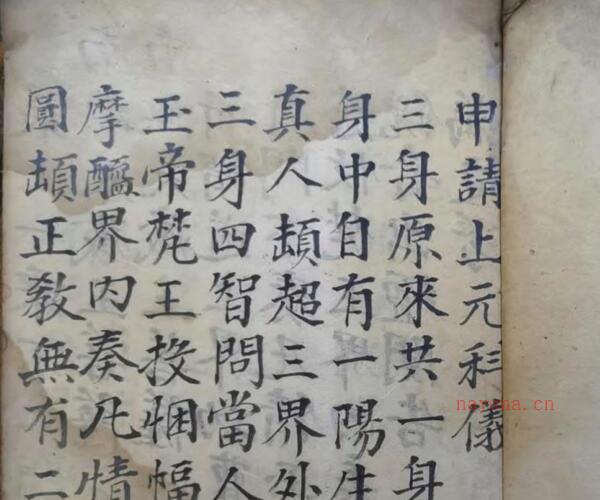 申請上元科儀
三身原來共一身
身中自有一陽生
真人頡超三界外
三身四智問當人
玉帝梵王投悃幅
摩醯界內奏凡情
圓頡正教無有二
nayona.cn